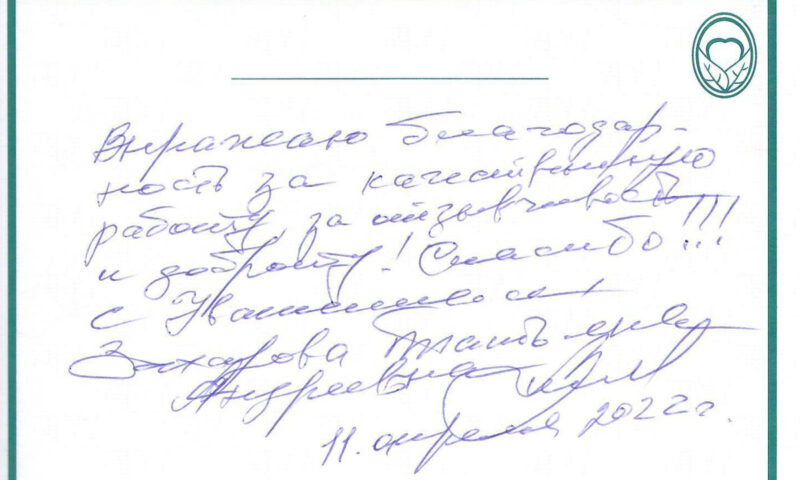 Выражаю благодар-
ность за качественную
работу, за отзывчивость
и доброту! Спасибо!!!
с Уважением
Захарова Татьяна
Андреевна
11. апреля 2022г.